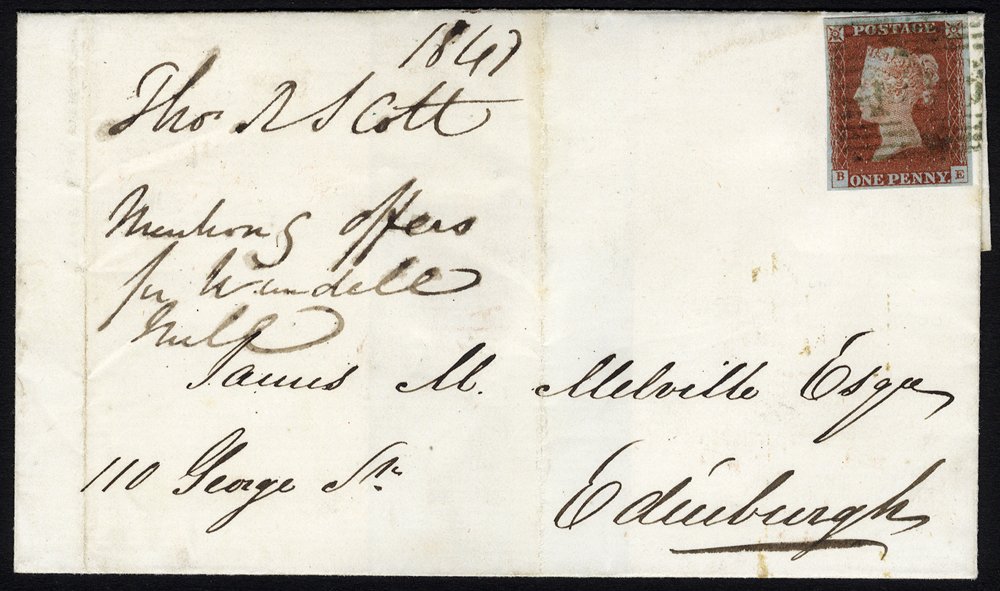 1847
Thos R Scott
Mentiong offers
for Windell
Mill
James M. Melville Esqre
110 George St.
Edinburgh
POSTAGE
B ONE PENNY E